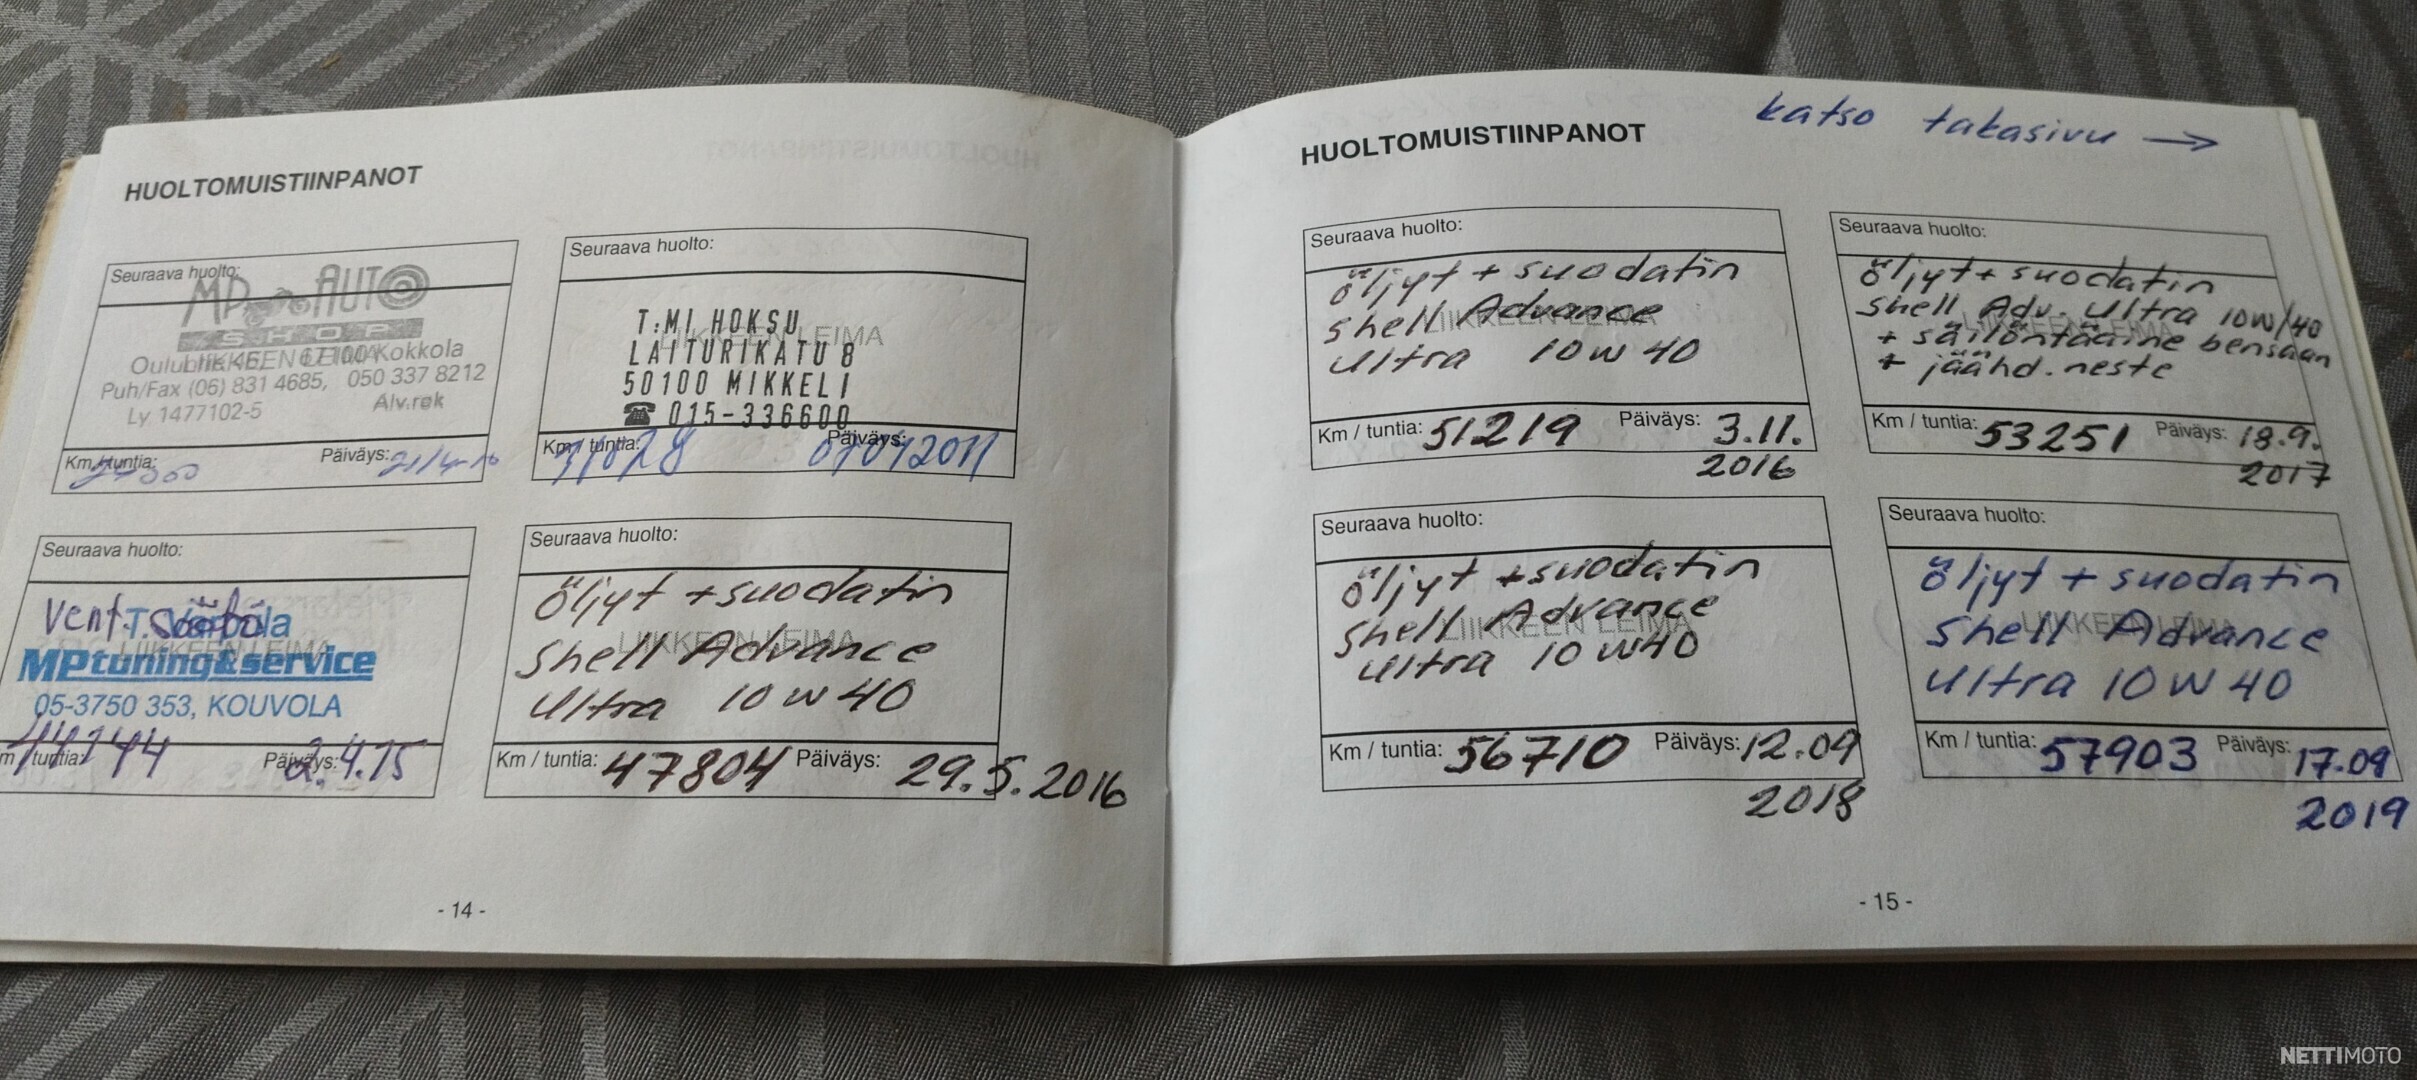 HUOLTOMUISTIINPANOT
Seuraava huolto:
MP AUTO
SHOP
LIIKKEEN LEIMA
67100 Kokkola
Puh/Fax (06) 831 4685, 050 337 8212
Ly 1477102-5 Alv.rek
Km / tuntia: Päiväys:
Seuraava huolto:
LIIKKEEN LEIMA
T:MI HOKSU
LAITURIKATU 8
50100 MIKKELI
☎ 015-336600
Km / tuntia: 31028 Päiväys: 07042011
Seuraava huolto:
vent. säätö
LIIKKEEN LEIMA
MPtuning&service
05-3750 353, KOUVOLA
m / tuntia: 44744 Päiväys: 2.4.15
Seuraava huolto:
öljyt + suodatin
LIIKKEEN LEIMA
Shell Advance
Ultra 10 W 40
Km / tuntia: 47804 Päiväys: 29.5.2016
- 14 -
HUOLTOMUISTIINPANOT
katso takasivu →
Seuraava huolto:
öljyt + suodatin
LIIKKEEN LEIMA
Shell Advance
Ultra 10 W 40
Km / tuntia: 51219 Päiväys: 3.11.
2016
Seuraava huolto:
öljyt + suodatin
LIIKKEEN LEIMA
Shell Adv. Ultra 10W/40
+ säilöntäaine bensaan
+ jäähd. neste
Km / tuntia: 53251 Päiväys: 18.9.
2017
Seuraava huolto:
öljyt + suodatin
LIIKKEEN LEIMA
Shell Advance
Ultra 10 W40
Km / tuntia: 56710 Päiväys: 12.09
2018
Seuraava huolto:
öljyt + suodatin
LIIKKEEN LEIMA
Shell Advance
Ultra 10 W 40
Km / tuntia: 57903 Päiväys: 17.09
2019
- 15 -
NETTIMOTO